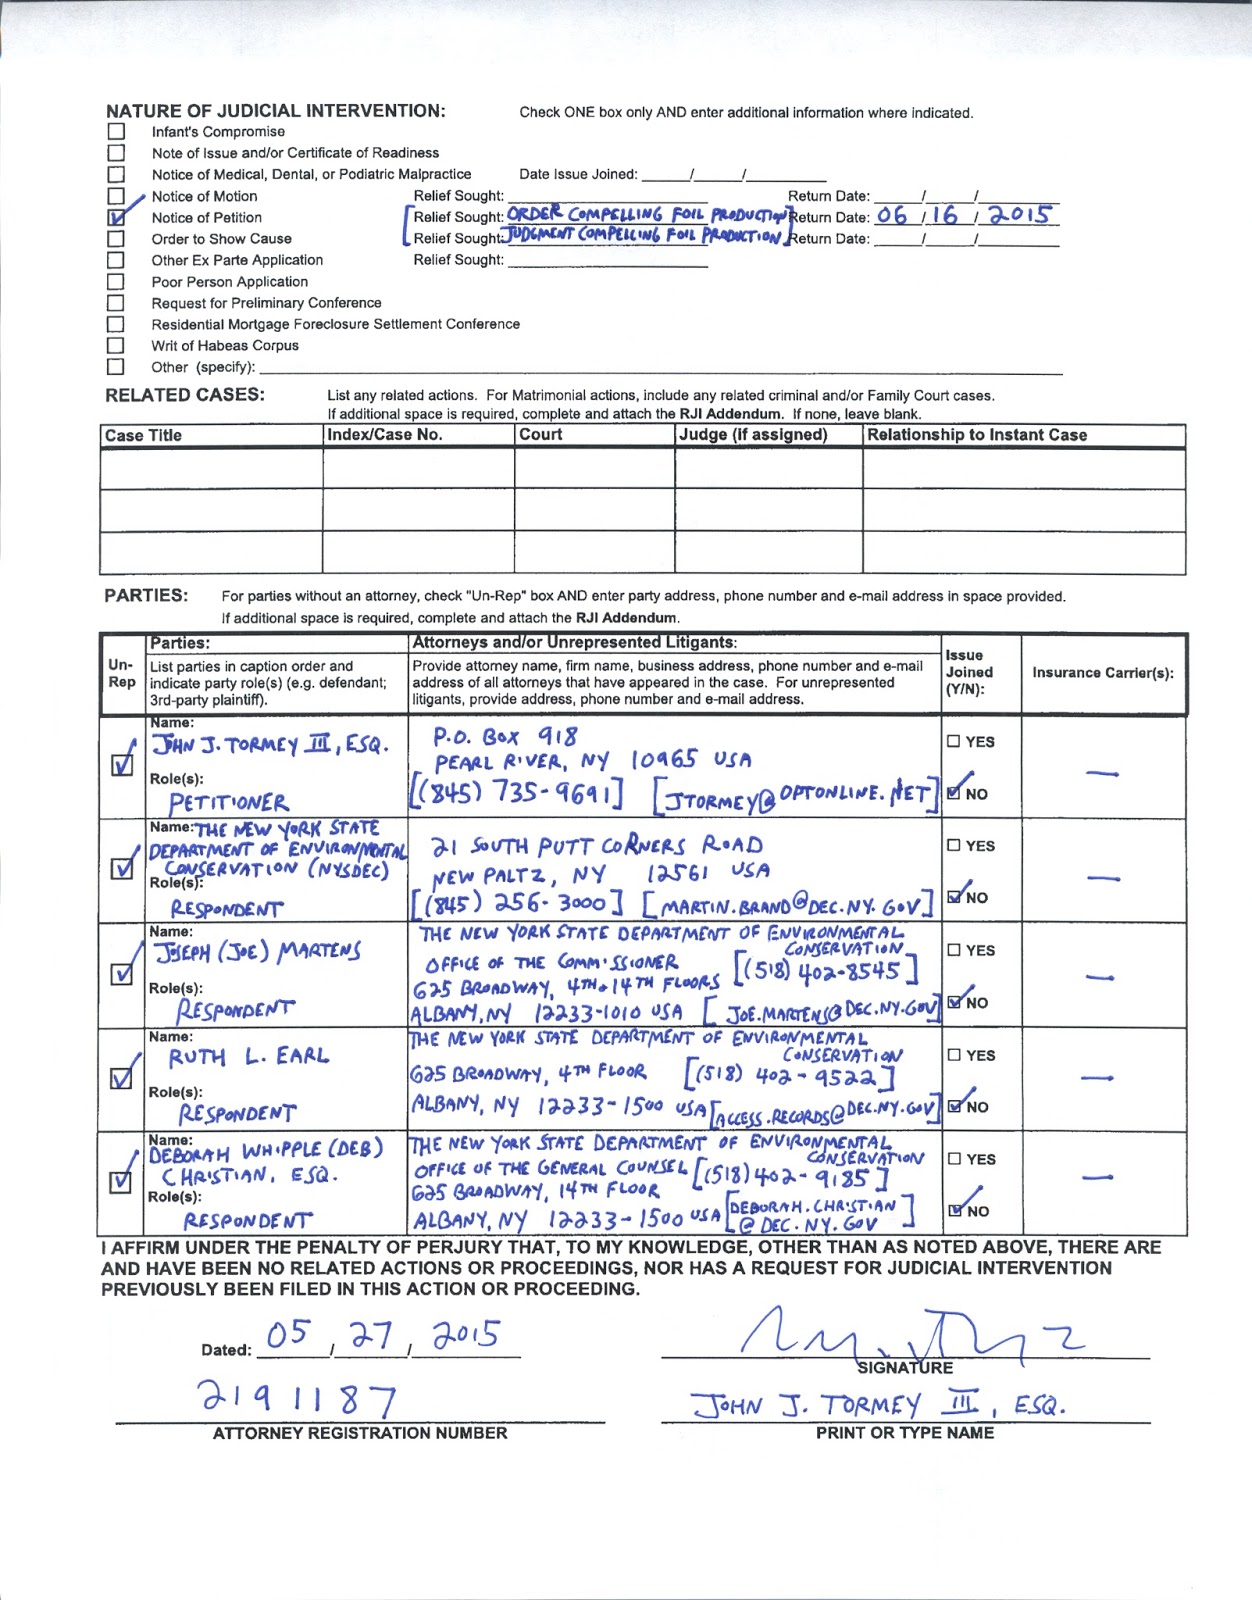 NATURE OF JUDICIAL INTERVENTION: Check ONE box only AND enter additional information where indicated.
Infant's Compromise
Note of Issue and/or Certificate of Readiness
Notice of Medical, Dental, or Podiatric Malpractice Date Issue Joined: / /
Notice of Motion Relief Sought: Return Date: / /
Notice of Petition [Relief Sought: ORDER COMPELLING FOIL PRODUCTION] Return Date: 06 / 16 / 2015
Order to Show Cause [Relief Sought: JUDGMENT COMPELLING FOIL PRODUCTION] Return Date: / /
Other Ex Parte Application Relief Sought:
Poor Person Application
Request for Preliminary Conference
Residential Mortgage Foreclosure Settlement Conference
Writ of Habeas Corpus
Other (specify):
RELATED CASES: List any related actions. For Matrimonial actions, include any related criminal and/or Family Court cases.
If additional space is required, complete and attach the RJI Addendum. If none, leave blank.
Case Title Index/Case No. Court Judge (if assigned) Relationship to Instant Case
PARTIES: For parties without an attorney, check "Un-Rep" box AND enter party address, phone number and e-mail address in space provided.
If additional space is required, complete and attach the RJI Addendum.
Un-Rep
Parties:
List parties in caption order and
indicate party role(s) (e.g. defendant;
3rd-party plaintiff).
Attorneys and/or Unrepresented Litigants:
Provide attorney name, firm name, business address, phone number and e-mail
address of all attorneys that have appeared in the case. For unrepresented
litigants, provide address, phone number and e-mail address.
Issue
Joined
(Y/N):
Insurance Carrier(s):
Name:
JOHN J. TORMEY III, ESQ.
Role(s):
PETITIONER
P.O. BOX 918
PEARL RIVER, NY 10965 USA
[(845) 735-9691] [JTORMEY@OPTONLINE.NET]
YES
NO
—
Name: THE NEW YORK STATE
DEPARTMENT OF ENVIRONMENTAL
CONSERVATION (NYSDEC)
Role(s):
RESPONDENT
21 SOUTH PUTT CORNERS ROAD
NEW PALTZ, NY 12561 USA
[(845) 256-3000] [MARTIN.BRAND@DEC.NY.GOV]
YES
NO
—
Name:
JOSEPH (JOE) MARTENS
Role(s):
RESPONDENT
THE NEW YORK STATE DEPARTMENT OF ENVIRONMENTAL
CONSERVATION
OFFICE OF THE COMMISSIONER [(518) 402-8545]
625 BROADWAY, 4TH & 14TH FLOORS
ALBANY, NY 12233-1010 USA [JOE.MARTENS@DEC.NY.GOV]
YES
NO
—
Name:
RUTH L. EARL
Role(s):
RESPONDENT
THE NEW YORK STATE DEPARTMENT OF ENVIRONMENTAL
CONSERVATION
625 BROADWAY, 4TH FLOOR [(518) 402-9522]
ALBANY, NY 12233-1500 USA [ACCESS.RECORDS@DEC.NY.GOV]
YES
NO
—
Name:
DEBORAH WHIPPLE (DEB)
CHRISTIAN, ESQ.
Role(s):
RESPONDENT
THE NEW YORK STATE DEPARTMENT OF ENVIRONMENTAL
CONSERVATION
OFFICE OF THE GENERAL COUNSEL [(518) 402-9185]
625 BROADWAY, 14TH FLOOR
ALBANY, NY 12233-1500 USA [DEBORAH.CHRISTIAN
@DEC.NY.GOV]
YES
NO
—
I AFFIRM UNDER THE PENALTY OF PERJURY THAT, TO MY KNOWLEDGE, OTHER THAN AS NOTED ABOVE, THERE ARE
AND HAVE BEEN NO RELATED ACTIONS OR PROCEEDINGS, NOR HAS A REQUEST FOR JUDICIAL INTERVENTION
PREVIOUSLY BEEN FILED IN THIS ACTION OR PROCEEDING.
Dated: 05 / 27 / 2015
SIGNATURE
2191187
JOHN J. TORMEY III, ESQ.
ATTORNEY REGISTRATION NUMBER
PRINT OR TYPE NAME